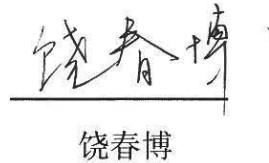 饶春博
饶春博